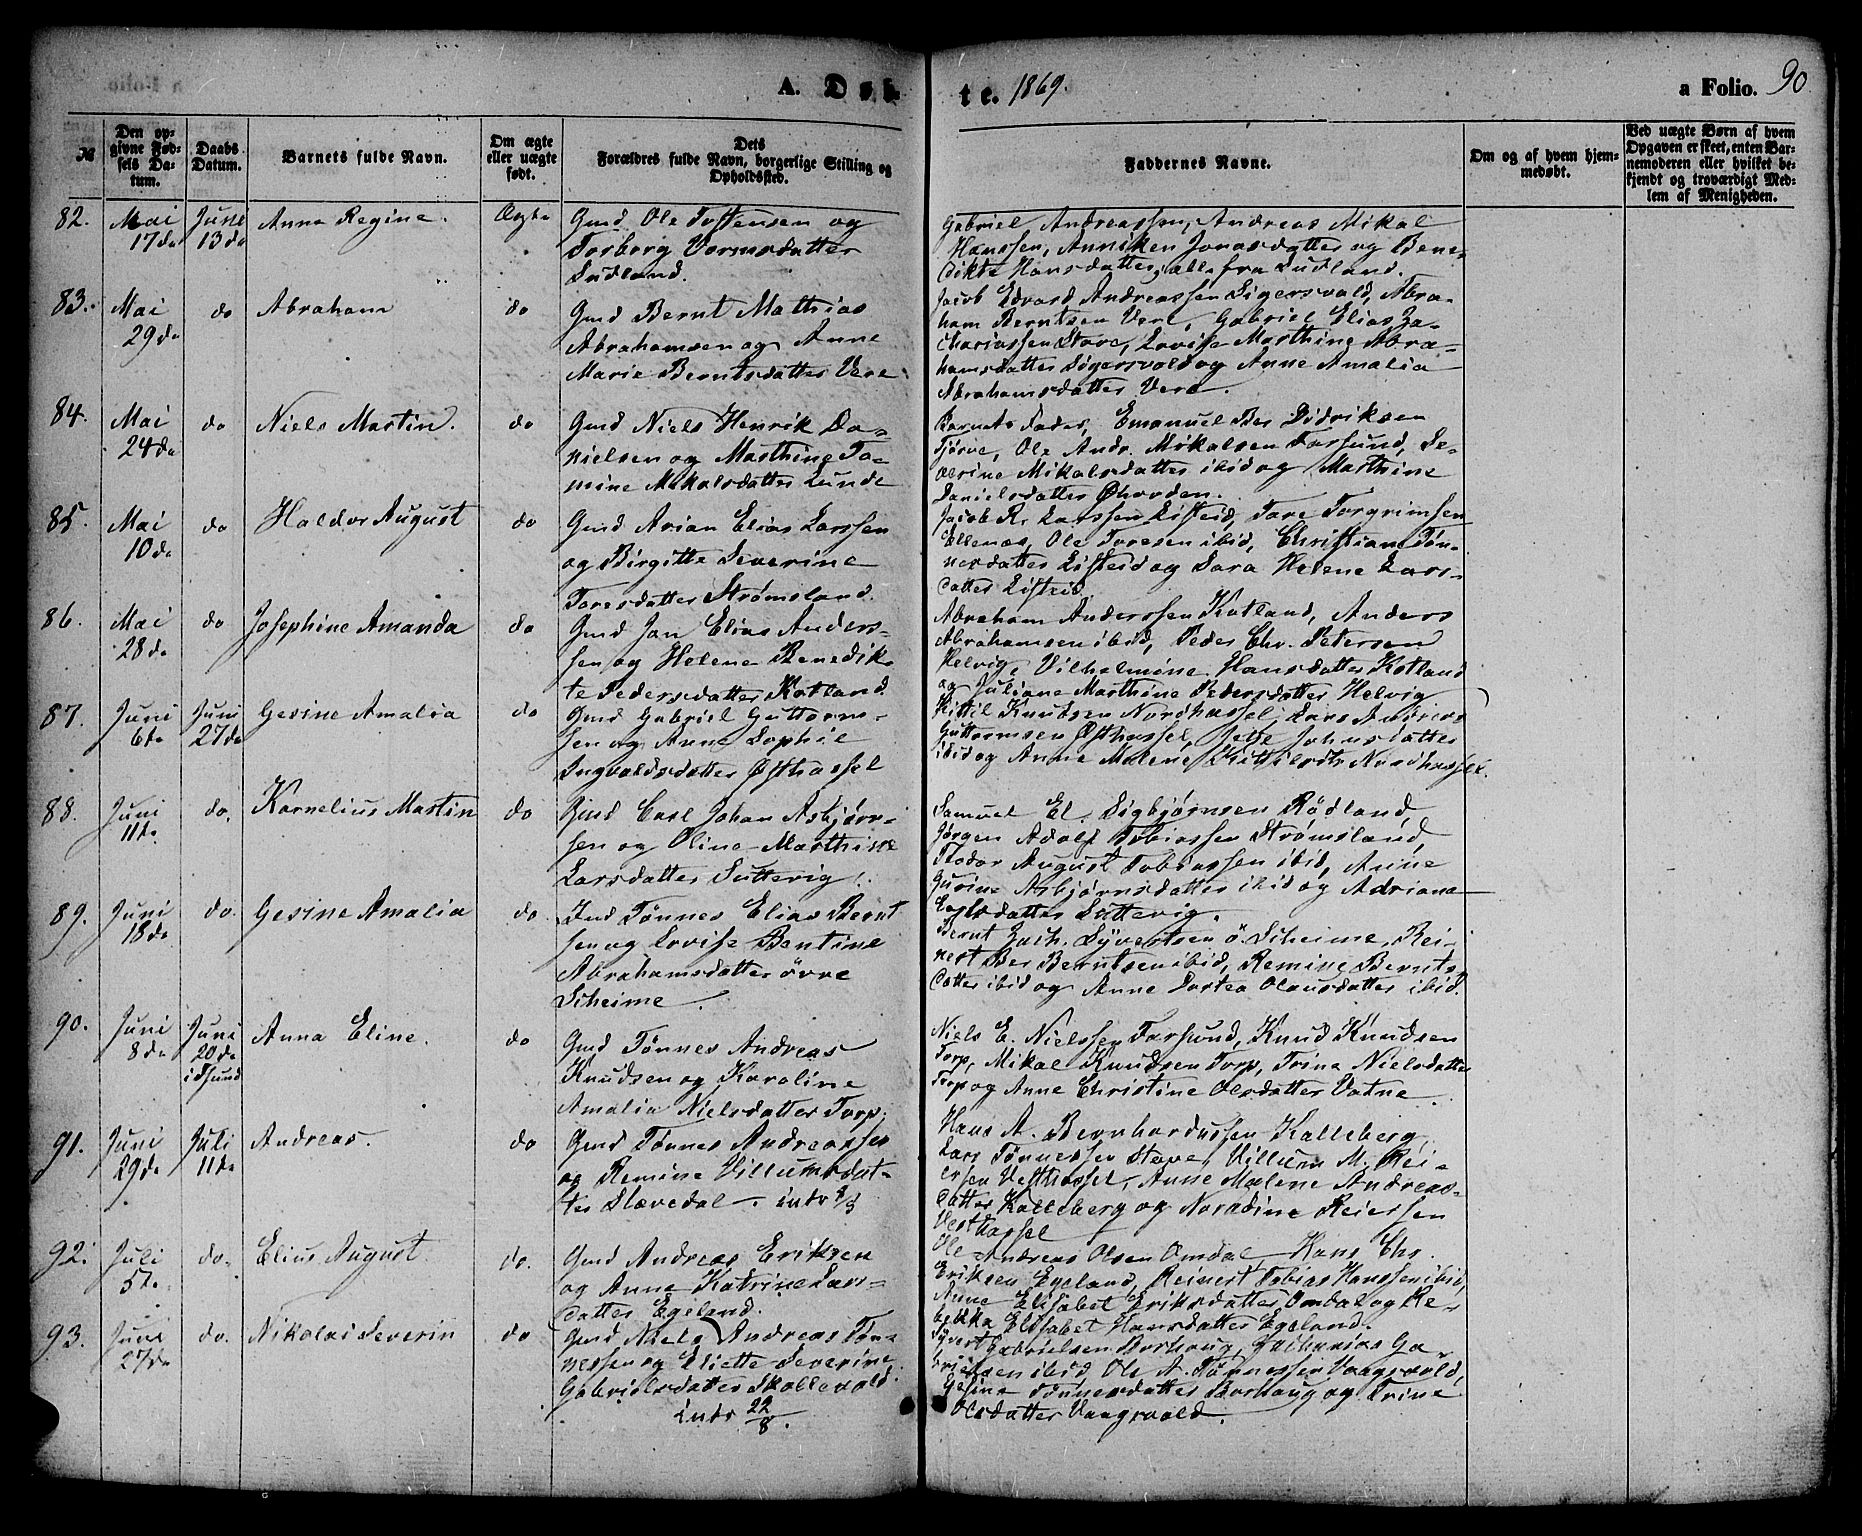 A. Døb
te. 1869.
a Folio. 90
№
Den op-
givne Fød-
sels Da-
tum.
Daabs
Datum.
Barnets fulde Navn.
Om ægte
eller uægte
født.
Dets
Forældres fulde Navn, borgerlige Stilling og
Opholdssted.
Faddernes Navne.
Om og af hvem hjem-
medøbt.
Ved uægte Børn af hvem
Opgaven er skeet, enten Bar-
nemoderen eller hvilket be-
kjendt og troværdigt Med-
lem af Menigheden.
82. Mai 17de
June 13de
Anna Regine.
Ægte
Gmd Ole Toffensen og
Torborg Vormsdatter
Sudland.
Gabriel Andreassen, Andreas Mikal
Hanssen, Anniken Jonasdatter og Bene-
dikte Hansdatter, alle fra Sudland.
83. Mai 29de
do
Abraham
do
Gmd Bernt Mathias
Abrahamsen og Anne
Marie Berntsdatter Vere
Jacob Edvard Andreassen Sigersvold, Abra-
ham Berntsen Vere, Gabriel Elias Za-
chariassen Stave, Lovise Marthine Abra-
hamsdatter Sigersvold og Anne Amalia
Abrahamsdatter Vere.
84. Mai 24de
do
Niels Martin.
do
Gmd Niels Henrik Da-
nielsen og Marthine To-
mine Mikalsdatter Lunde
Barnets Fader, Emanuel Ber Didriksen
Tjørve, Ole Andr. Mikalsen Farsund, Se-
verine Mikalsdatter ibid og Marthine
Danielsdatter
85. Mai 10de
do
Haldor August
do
Gmd Arian Elias Larssen
og Birgitte Severine
Toresdatter Strømsland.
Jacob R. Larssen Listeid, Tore Torgrimsen
Ellenæs, Ole Toresen ibid, Christian Tøn-
nesdatter Listeid og Sara Helene Lars-
datter Listeid
86. Mai 28de
do
Josephine Amanda
do
Gmd Jan Elias Anders-
sen og Helene Benedik-
te Pedersdatter Kotland
Abraham Anderssen Kotland, Anders
Abrahamsen ibid, Peder Chr. Petersen
Helvig, Vilhelmine Hansdatter Kotland
og Juliane Marthine Pedersdatter Helvig
87. Juni 6te
Juni 27de
Gesine Amalia
do
Gmd Gabriel Guttorm-
sen og Anne Sophie
Ingvaldsdatter Østhassel
Kittil Knudsen Nordhassel, Lars Andreas
Guttormsen Østhassel, Jette Johnsdatter
ibid og Anne Malene Kittilsdtr Nordhassel.
88. Juni 11te
do.
Kornelius Martin
do
Gmd Carl Johan Asbjørn-
sen og Oline Marthine
Larsdatter Suttevig.
Samuel El. Sigbjørnsen Rødland,
Jørgen Adolf Tobiassen Strømsland,
Theodor August Tobiassen ibid, Anine
Gurine Asbjørnsdatter ibid og Adriane
Larsdatter Suttevig.
89. Juni 18de
do.
Gesine Amalia
do.
Ind Tønnes Elias Bernt
sen og Lovise Bentine
Abrahamsdatter øvre
Scheime.
Bernt Zach. Syvertsen ö. Scheime, Rei-
nert Ber Berntsen ibid, Remine Bernts
datter ibid og Anne Dortea Olausdatter ibid.
90. Juni 8de
Juni 20de i Fsund
Anna Eline.
do
Gmd Tønnes Andreas
Knudsen og Karoline
Amalia Nielsdatter Torp.
Niels E. Nielssen Farsund, Knud Knudsen
Torp, Mikal Knudsen Torp, Trine Nielsdatter
Torp og Anne Christine Olsdatter Vatne.
91. Juni 29de
Juli 11de
Andreas.
do
Gmd Tønnes Andreassen
og Remine Villumsdat-
ter Slævedal. intr
Hans A. Bernhardussen Kalleberg,
Lars Tønnessen Stave, Villum M. Rei-
ersen Vesthassel, Anne Malene Andreas-
datter Kalleberg og Nordine Reiersen
Vesthassel
92. Juli 5te
do.
Elius August
do.
Gmd Andreas Eriksen
og Anne Katrine Lars-
datter Egeland.
Ole Andreas Olsen Omdal, Hans Chr.
Eriksen Egeland, Reinert Tobias Hanssen ibid,
Anne Elisabet Eriksdatter Omdal og Re-
bekka Elisabet Hansdatter Egeland.
93. Juni 27de
do.
Nikolai Severin
do
Gmd Niels Andreas Tøn-
nessen og Eliette Severine
Gabrielsdatter Skollevold.
intr 22/8.
Syvert Gabrielsen Borhaug, Zacharias Ga-
brielsen ibid, Ole A. Tønnessen Vaagsvold,
Gesine Tønnesdatter Borhaug og Trine
Olsdatter Vaagsvold.